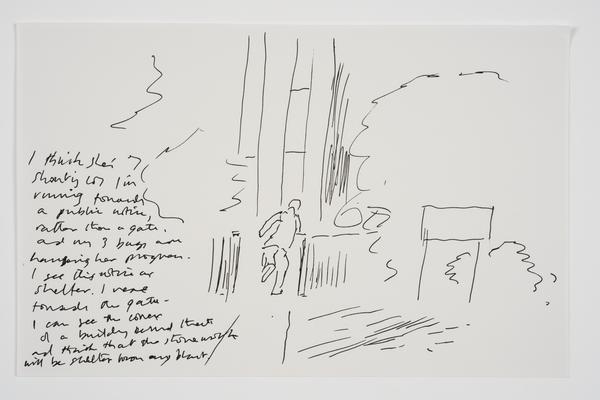 I think she's
shouting cos I'm
running towards
a public notice,
rather than a gate.
and my 3 bags are
hampering her progress.
I see this notice as
shelter. I veer
towards the gate -
I can see the corner
of a building behind
and think that the stonework
will be shelter from any blast